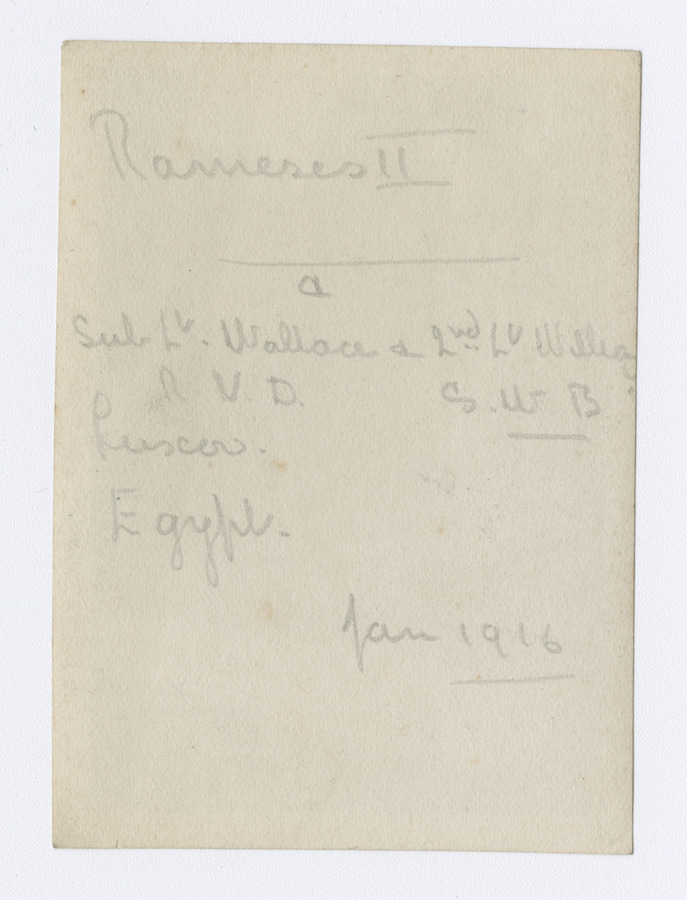 Rameses II
a
Sub Lt. Wallace & 2nd Lt
R V. D. S. W B
Luxor.
Egypt.
Jan 1916